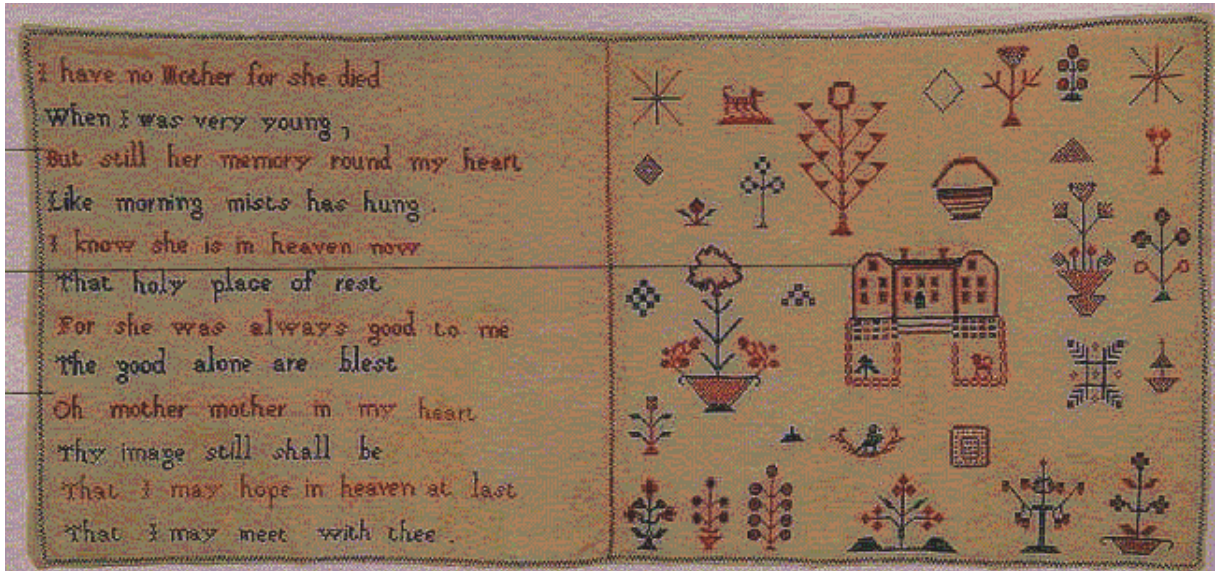 I have no Mother for she died
When I was very young,
But still her memory round my heart
Like morning mists has hung.
I know she is in heaven now
That holy place of rest
For she was always good to me
The good alone are blest
Oh mother mother in my heart
Thy image still shall be
That I may hope in heaven at last
That I may meet with thee.